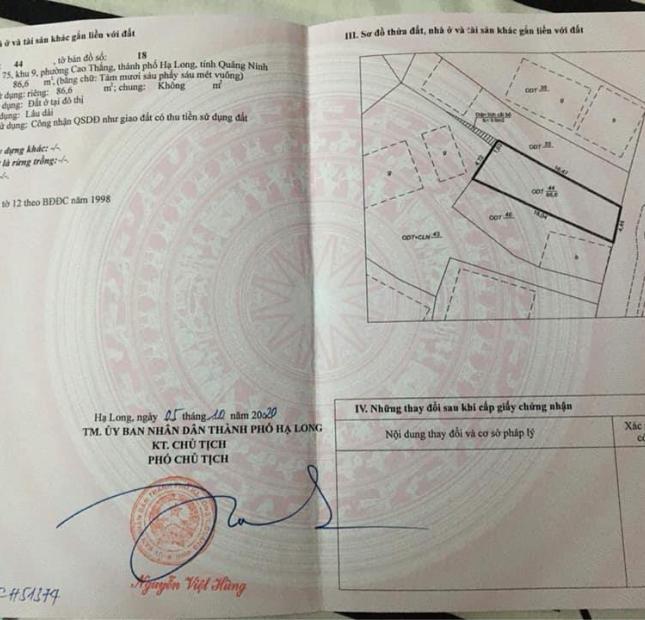 ở và tài sản khác gắn liền với đất
44 , tờ bản đồ số: 18
75, khu 9, phường Cao Thắng, thành phố Hạ Long, tỉnh Quảng Ninh
86,6 m², (bằng chữ: Tám mươi sáu phẩy sáu mét vuông)
dụng: riêng: 86,6 m²; chung: Không m²
dụng: Đất ở tại đô thị
dụng: Lâu dài
dụng: Công nhận QSDĐ như giao đất có thu tiền sử dụng đất
dựng khác: -/-
là rừng trồng:-/-
-/-
tờ 12 theo BĐĐC năm 1998
Hạ Long, ngày 05 tháng 10 năm 2020
TM. ỦY BAN NHÂN DÂN THÀNH PHỐ HẠ LONG
KT. CHỦ TỊCH
PHÓ CHỦ TỊCH
Nguyễn Việt Hùng
CHS1374
III. Sơ đồ thửa đất, nhà ở và tài sản khác gắn liền với đất
ODT
ODT
ODT 44
86,6
ODT
ODT+CLN
IV. Những thay đổi sau khi cấp giấy chứng nhận
Nội dung thay đổi và cơ sở pháp lý
Xác